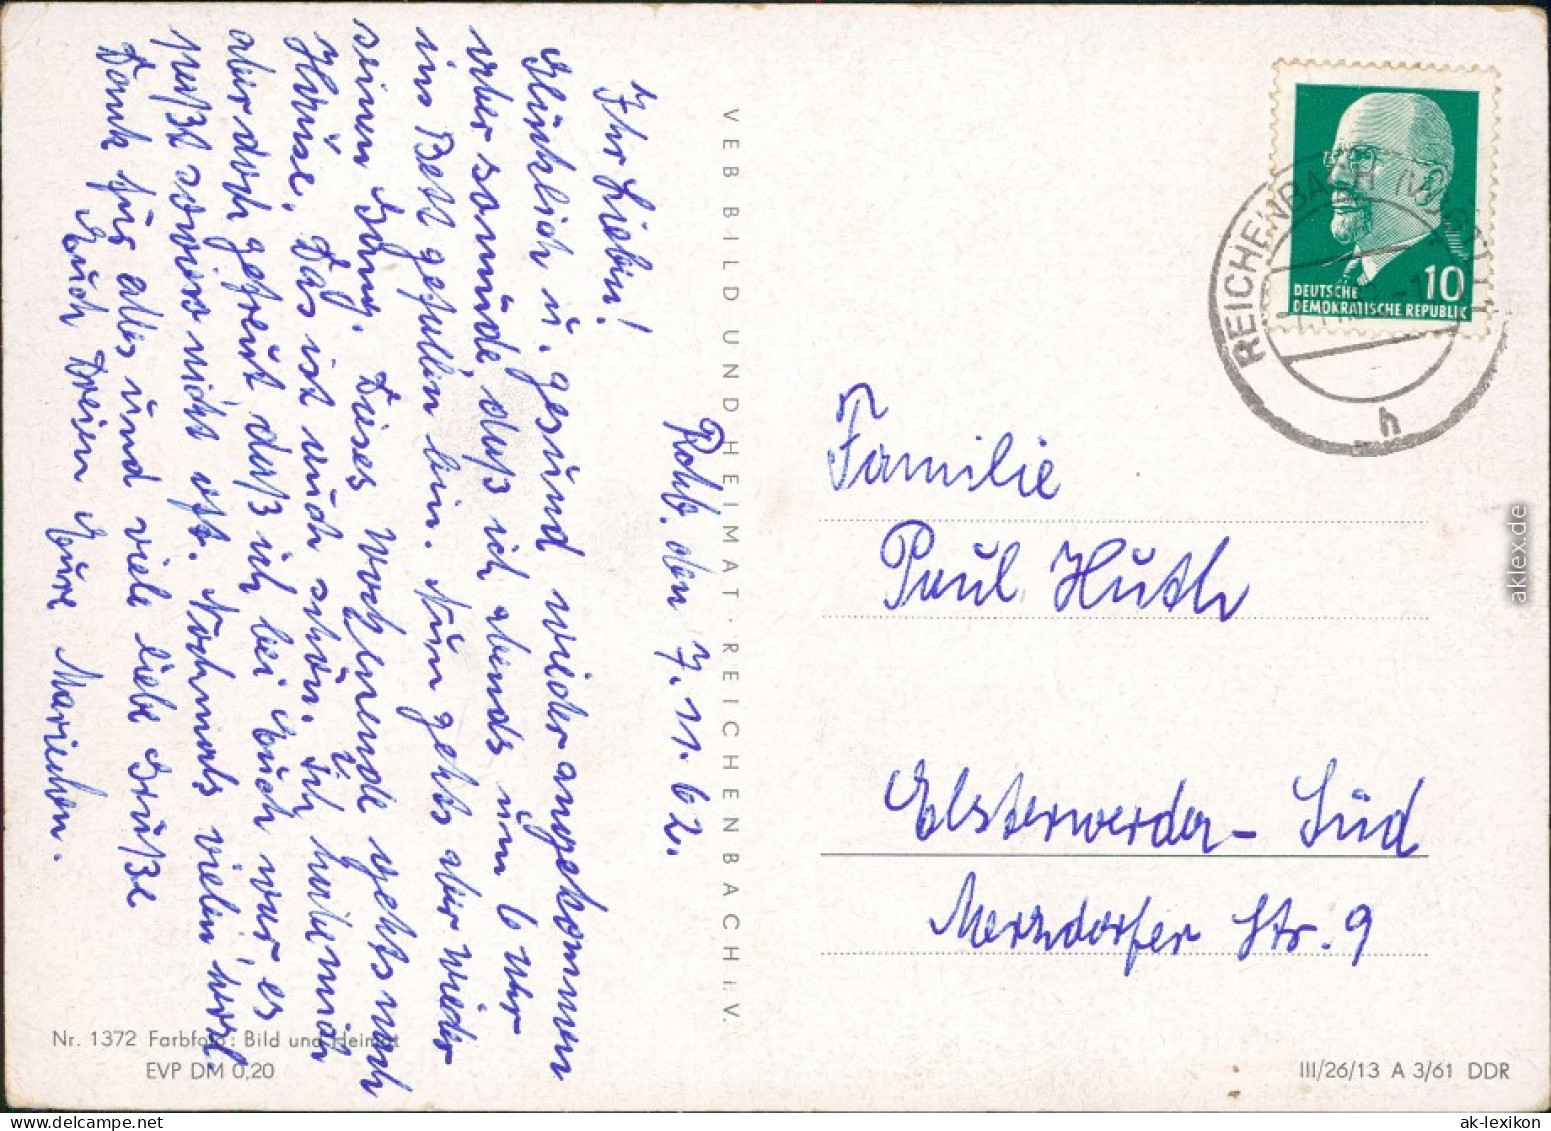 Rchb. den 7.11.62.
Ihr Lieben!
Glücklich u. gesund wieder angekommen
aber so müde, daß ich abends um 6 Uhr
ins Bett gefallen bin. Nun gehts aber wieder
seinen Gang. Dieses Wochenende gehts nach
Hause. Das ist auch schön. Ich habe mich
aber doch gefreut daß ich bei Euch war es
paßt sowieso nicht oft. Nochmals vielen herzl.
Dank für alles und viele liebe Grüße
Euch Dreien Eure Mariechen.
VEB BILD UND HEIMAT · REICHENBACH i. V.
Nr. 1372 Farbfoto: Bild und Heimat
EVP DM 0,20
REICHENBACH (VOGTL)
h
10
DEUTSCHE
DEMOKRATISCHE REPUBLIK
Familie
Paul Huth
Elsterwerda - Süd
Merzdorfer Str. 9
III/26/13 A 3/61 DDR
aklex.de
ak-lexikon